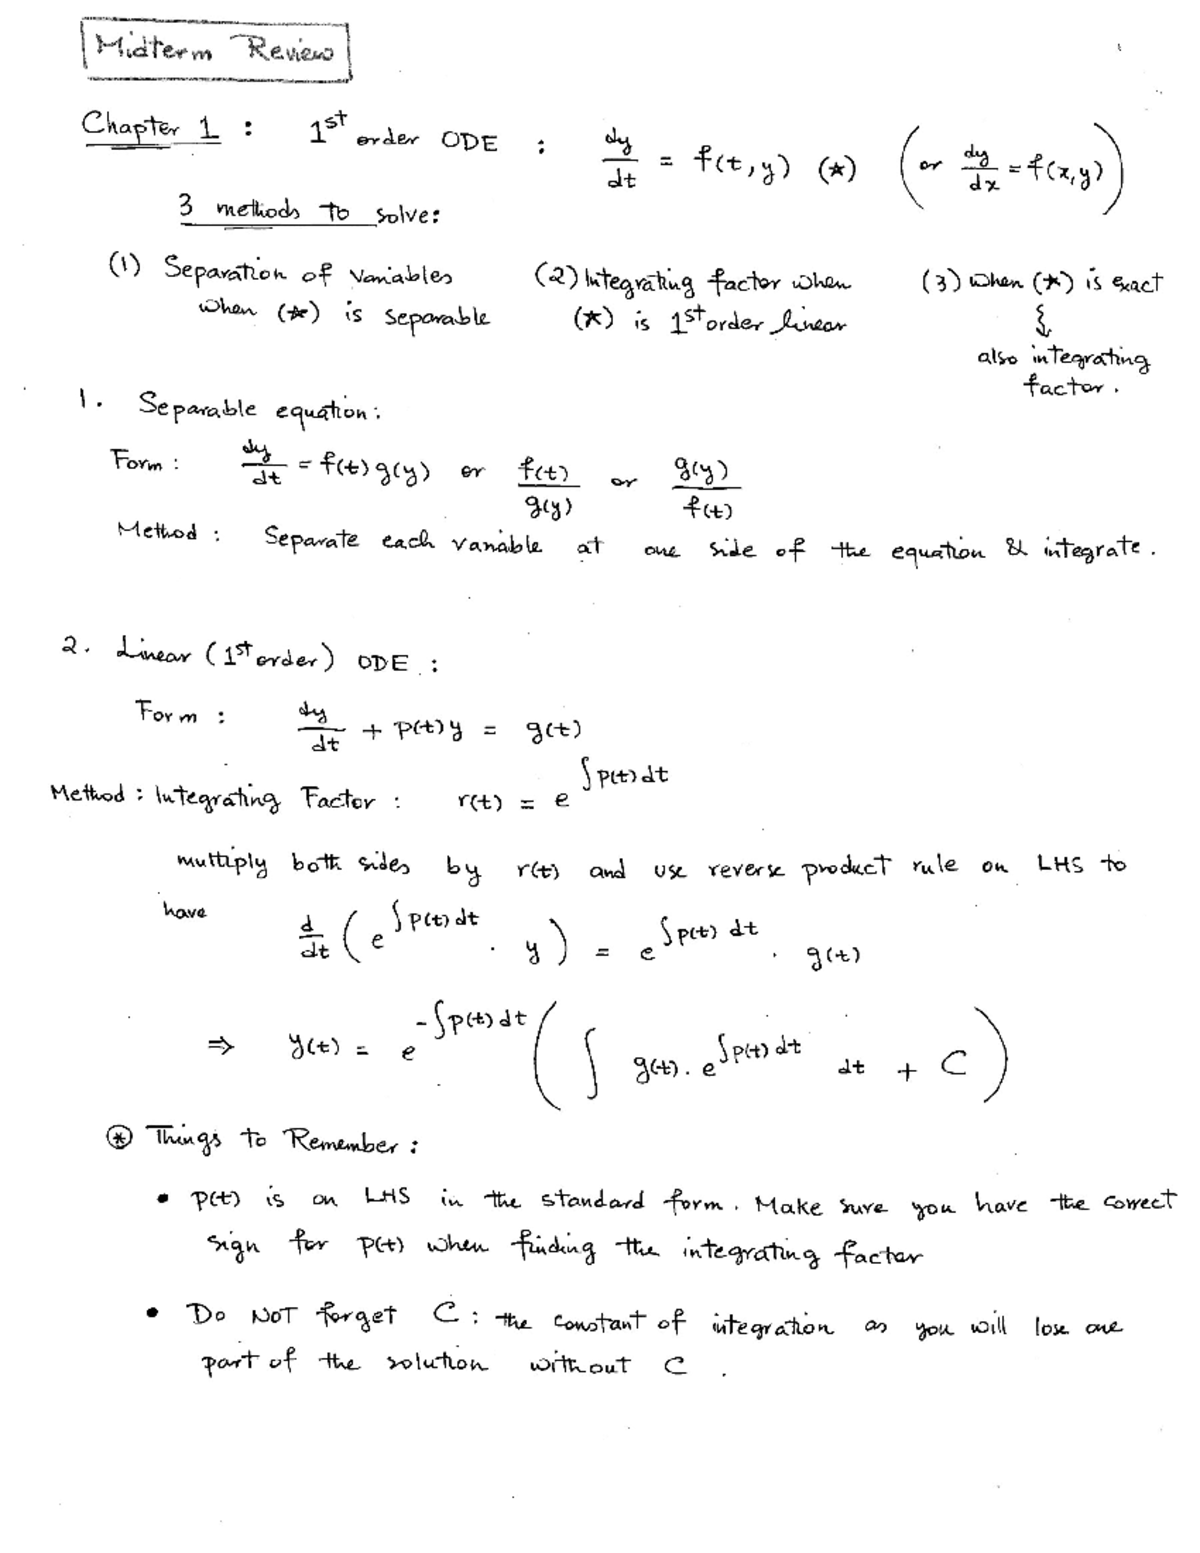 Midterm Review
Chapter 1 : 1st order ODE : dy/dt = f(t,y) (*) (or dy/dx = f(x,y))
3 methods to solve:
(1) Separation of variables when (*) is separable
(2) Integrating factor when (*) is 1st order linear
(3) when (*) is exact
also integrating factor.
1. Separable equation:
Form : dy/dt = f(t) g(y) or f(t)/g(y) or g(y)/f(t)
Method : Separate each variable at one side of the equation & integrate.
2. Linear (1st order) ODE :
Form : dy/dt + p(t)y = g(t)
Method : Integrating Factor : r(t) = e^∫p(t)dt
multiply both sides by r(t) and use reverse product rule on LHS to
have d/dt (e^∫p(t)dt · y) = e^∫p(t) dt · g(t)
⇒ y(t) = e^-∫p(t)dt (∫ g(t). e^∫p(t)dt dt + C)
⊛ Things to Remember :
• p(t) is on LHS in the standard form. Make sure you have the correct
sign for p(t) when finding the integrating factor
• Do NOT forget C : the constant of integration as you will lose one
part of the solution without C .